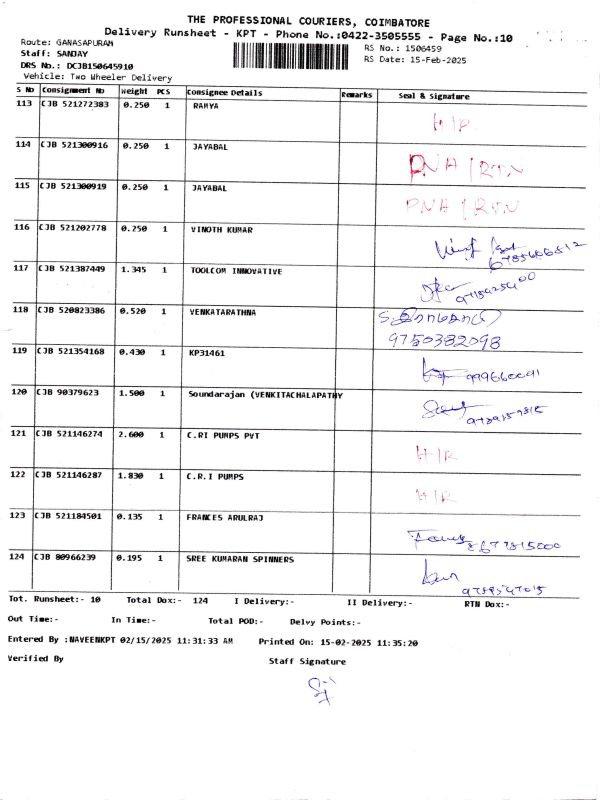 THE PROFESSIONAL COURIERS, COIMBATORE
Delivery Runsheet - KPT - Phone No.:0422-3505555 - Page No.:10
Route: GANASAPURAM
RS No.: 1506459
Staff: SANJAY
RS Date: 15-Feb-2025
DRS No.: DCJB150645910
Vehicle: Two Wheeler Delivery
S No Consignment No Weight PCS Consignee Details Remarks Seal & Signature
113 CJB 521272383 0.250 1 RAMYA H/R
114 CJB 521300916 0.250 1 JAYABAL DNA/RTN
115 CJB 521300919 0.250 1 JAYABAL PNA/RTN
116 CJB 521202778 0.250 1 VINOTH KUMAR
117 CJB 521387449 1.345 1 TOOLCOM INNOVATIVE
118 CJB 520823386 0.520 1 VENKATARATHNA
9750382098
119 CJB 521354168 0.430 1 KP31461
120 CJB 90379623 1.500 1 Soundarajan (VENKITACHALAPATHY
121 CJB 521146274 2.600 1 C.RI PUMPS PVT H/R
122 CJB 521146287 1.830 1 C.R.I PUMPS H/R
123 CJB 521184501 0.135 1 FRANCES ARULRAJ
124 CJB 80966239 0.195 1 SREE KUMARAN SPINNERS
Tot. Runsheet:- 10 Total Dox:- 124 I Delivery:- II Delivery:- RTN Dox:-
Out Time:- In Time:- Total POD:- Delvy Points:-
Entered By :NAVEENKPT 02/15/2025 11:31:33 AM Printed On: 15-02-2025 11:35:20
Verified By Staff Signature